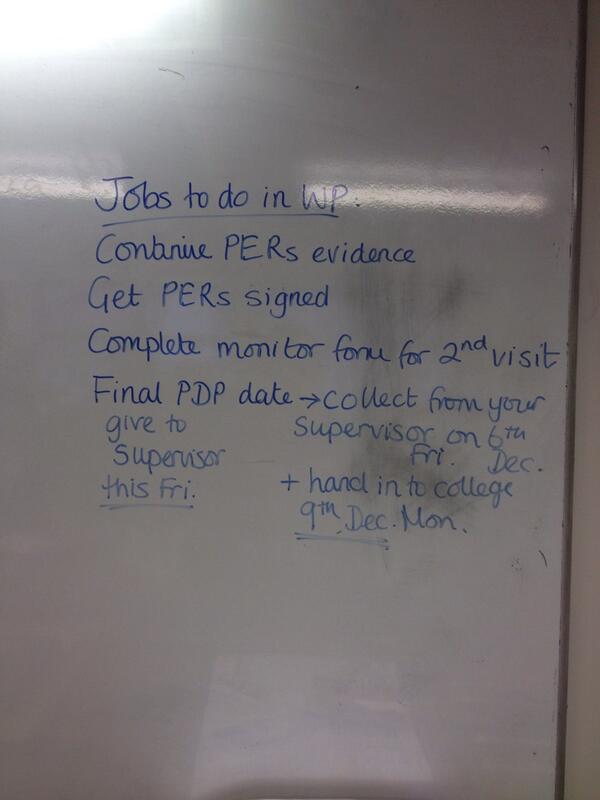 Jobs to do in WP.
Continue PERs evidence
Get PERs signed
Complete monitor form for 2nd visit
Final PDP date → collect from your
give to
Supervisor
this Fri.
Supervisor on 6th
Fri. Dec.
+ hand in to college
9th Dec. Mon.